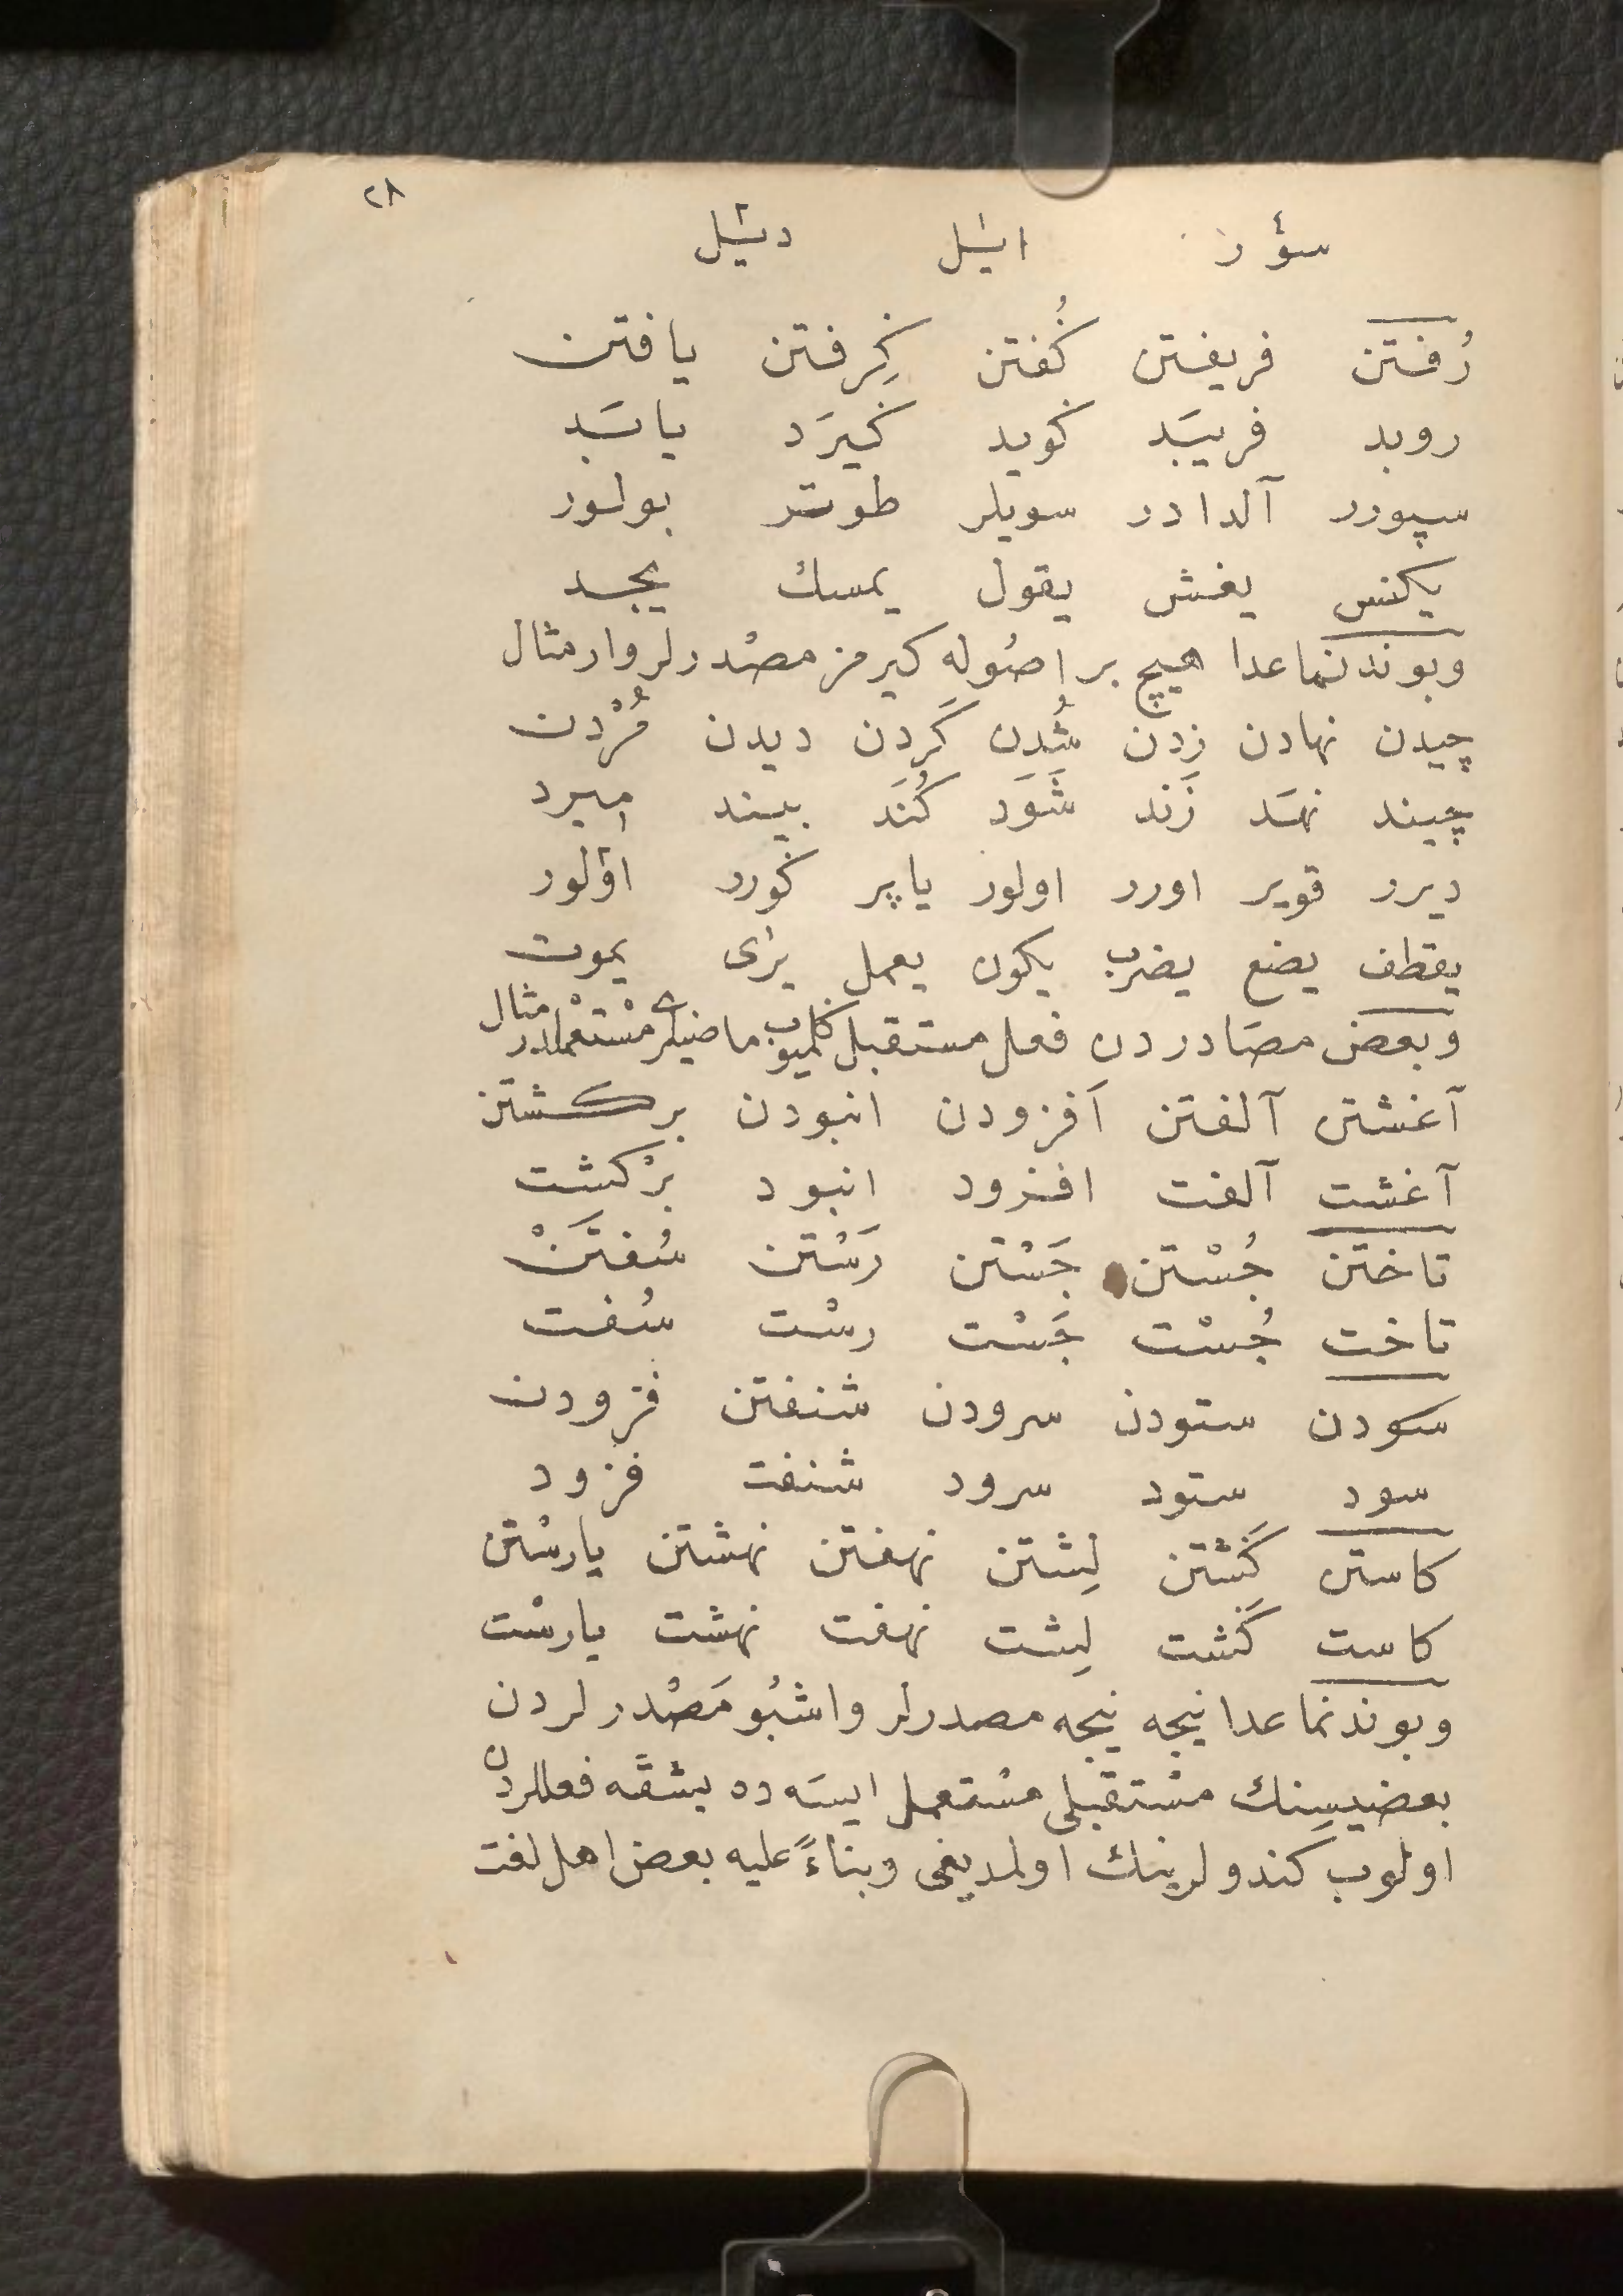 ٢٨
سؤز اٮشل دٮشل
رُفتن فريفتن كُفتن كِرفتن يافتن
روبد فريبَد كويد كيرَد يابَد
سپورر آلدادر سويلر طوتر بولور
يكنس يغش يقول يمسك يجد
وبوندنماعدا هيچ بر اصُوله كيرمز مصْدرلر وار مثال
چيدن نهادن زدن شُدن كَردن ديدن مُرْدن
چيند نهَد زَند شَوَد كُنَد بيند ميرد
ديرر قوير اورر اولور ياپر كورر اؤلور
يقطف يضع يضرب يكون يعمل يرى يموت
وبعض مصَادردن فعل مستقبل كلميوب ماضيلرى مسْتعْملدر مثال
آغشتن آلفتن اَفزودن انبودن بركشتن
آغشت آلفت افزود انبود برْكشت
تاختن جُسْتن جَسْتن رَسْتن سُفتَنْ
تاخت جُسْت جَسْت رسْت سُفت
سودن ستودن سرودن شنفتن فزودن
سود ستود سرود شنفت فزود
كاستن كَشتن لِشتن نهفتن نهشتن يارسْتن
كاست كَشت لِشت نهفت نهشت يارسْت
وبوندنماعدا نيجه نيجه مصدرلر واشبُو مَصْدرلردن
بعضيسِنك مسْتقبلى مسْتعمل ايسَه ده بشقَه فعللردن
اولوب كندولرينك اولمديغى وبناءً عليه بعض اهل لغت